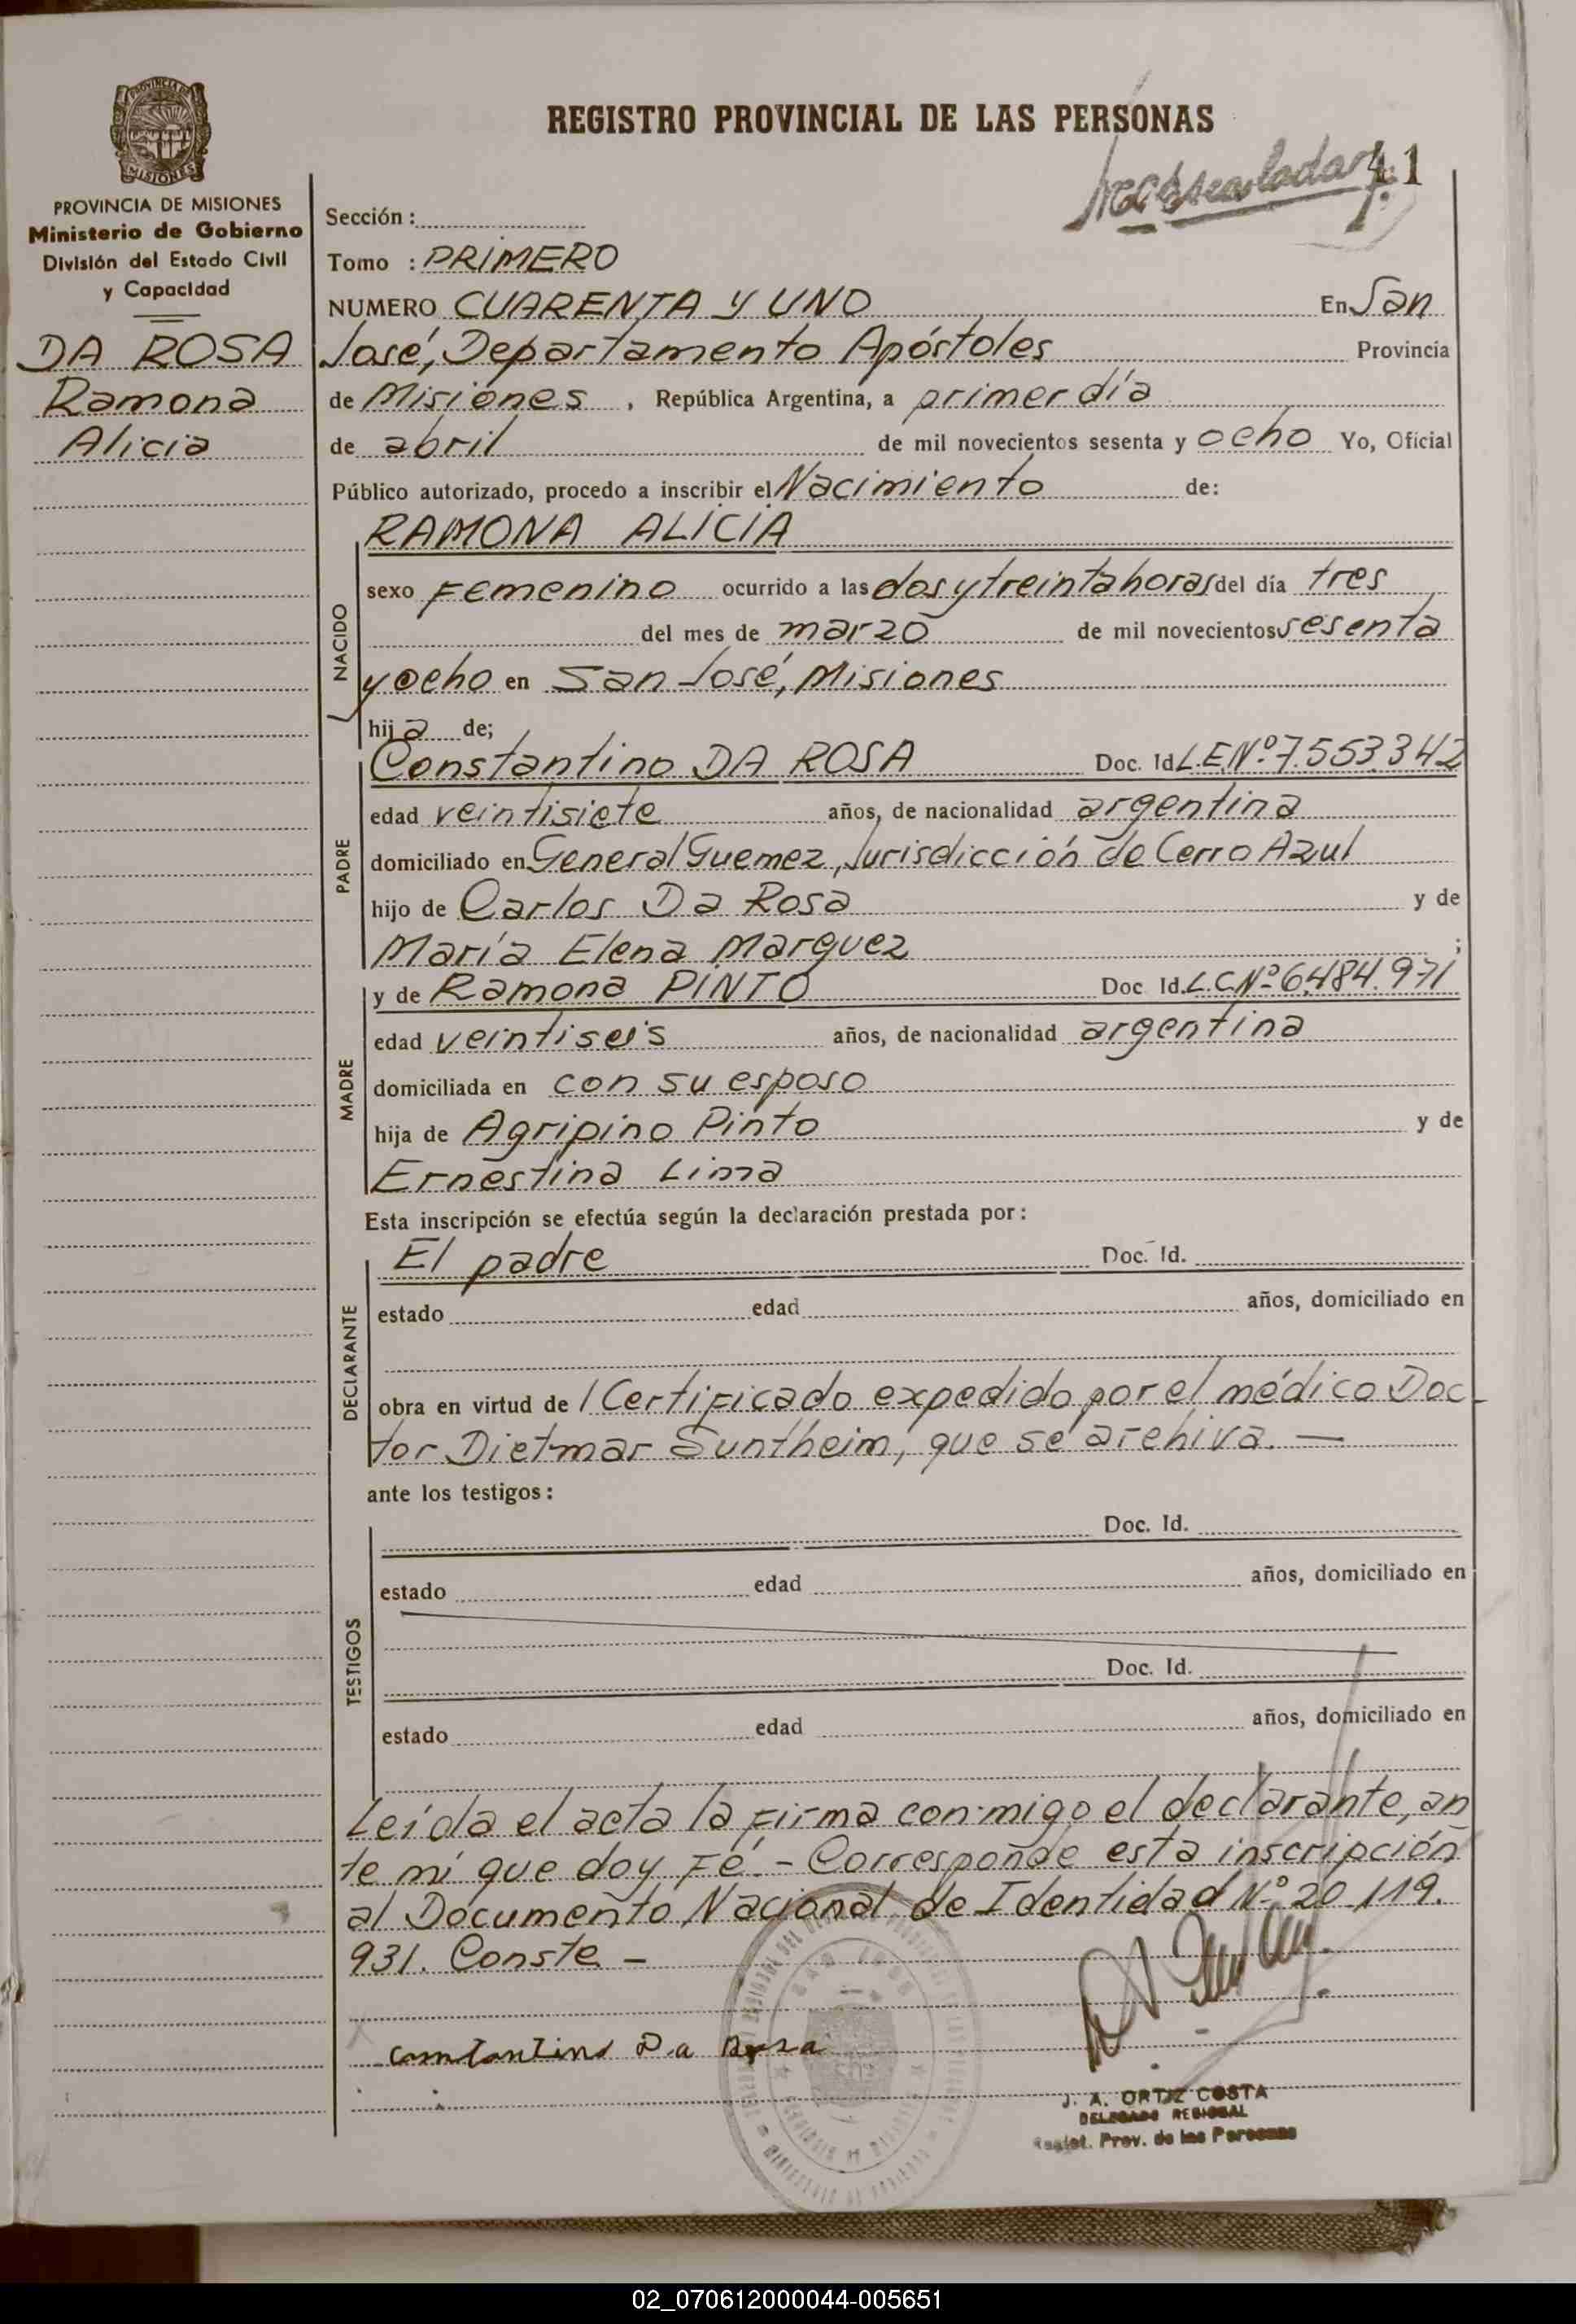 REGISTRO PROVINCIAL DE LAS PERSONAS
41
MISIONES
PROVINCIA DE MISIONES
Ministerio de Gobierno
División del Estado Civil
y Capacidad
DA ROSA
Ramona
Alicia
Sección:
Tomo : PRIMERO
NUMERO CUARENTA Y UNO En San
José, Departamento Apóstoles Provincia
de Misiones, República Argentina, a primer día
de abril de mil novecientos sesenta y ocho Yo, Oficial
Público autorizado, procedo a inscribir el Nacimiento de:
RAMONA ALICIA
NACIDO
sexo Femenino ocurrido a las dos y treinta horas del día tres
del mes de marzo de mil novecientos sesenta
y ocho en San José, Misiones
hija de;
PADRE
Constantino DA ROSA Doc. Id L.E.Nº 7.553.342
edad veintisiete años, de nacionalidad argentina
domiciliado en General Guemez, Jurisdicción de Cerro Azul
hijo de Carlos Da Rosa y de
María Elena Marquez ;
MADRE
y de Ramona PINTO Doc Id. L.C.Nº 6.484.971
edad veintiseis años, de nacionalidad argentina
domiciliada en con su esposo
hija de Agripino Pinto y de
Ernestina Lima
Esta inscripción se efectúa según la declaración prestada por:
DECLARANTE
El padre Doc. Id.
estado edad años, domiciliado en
obra en virtud de 1 Certificado expedido por el médico Doc-
tor Dietmar Suntheim, que se archiva. —
ante los testigos:
TESTIGOS
Doc. Id.
estado edad años, domiciliado en
Doc. Id.
estado edad años, domiciliado en
Leída el acta la firma conmigo el declarante, an
te mí que doy Fé. - Corresponde esta inscripción
al Documento Nacional de Identidad Nº 20.119.
931. Conste —
Constantino Da Rosa
J. A. ORTIZ COSTA
DELEGADO REGIONAL
Regist. Prov. de las Personas
02_070612000044-005651